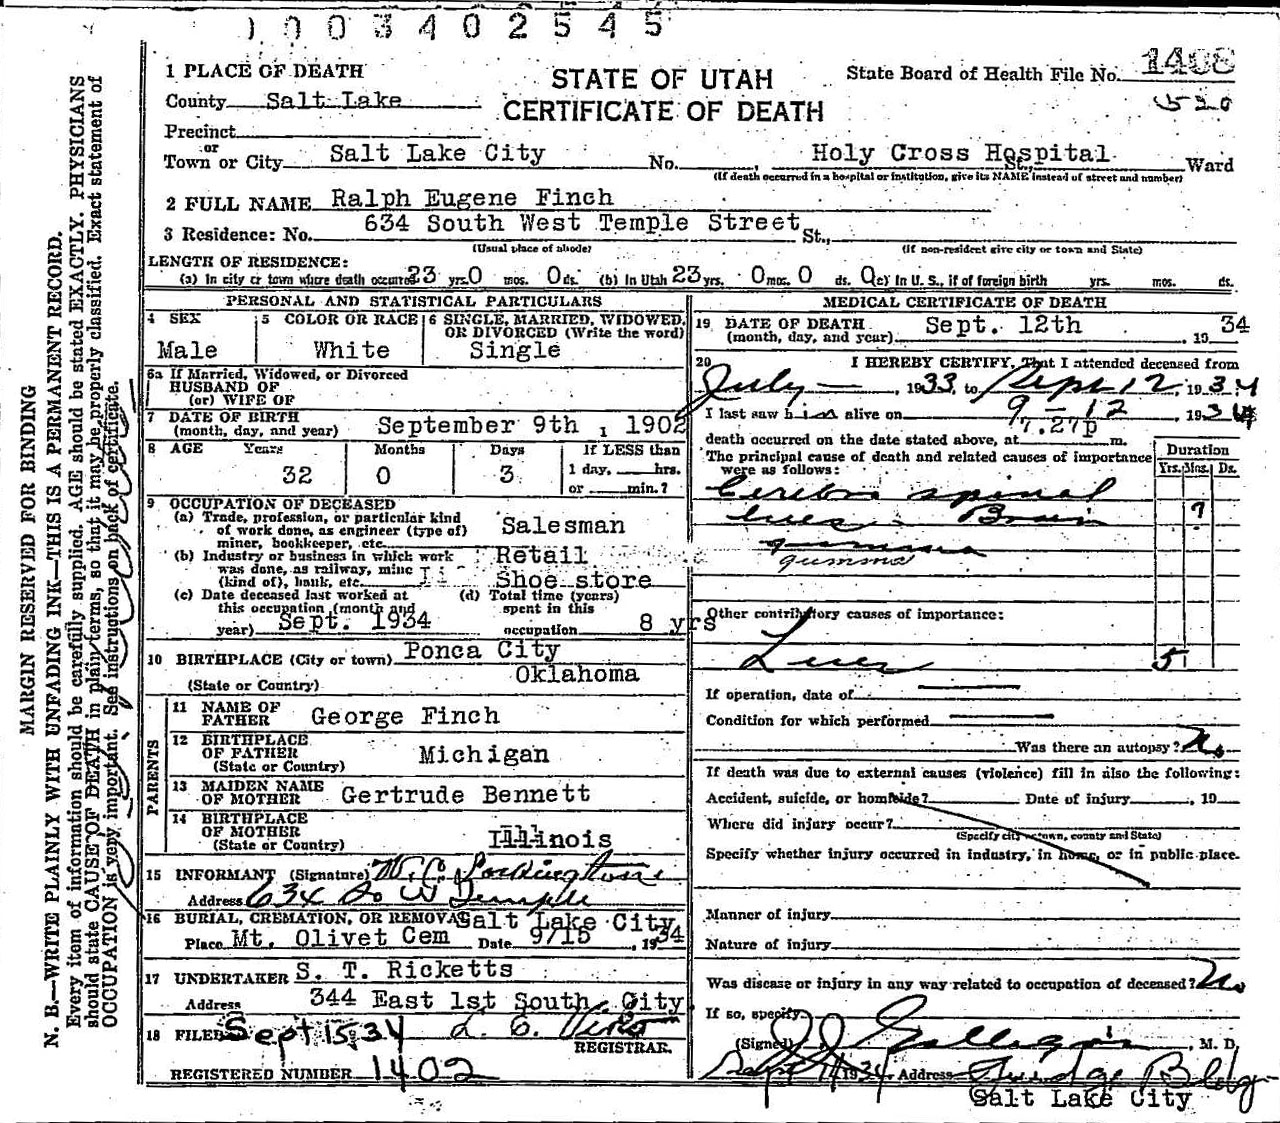 10034025 45
1 PLACE OF DEATH
STATE OF UTAH
CERTIFICATE OF DEATH
State Board of Health File No. 1408
530
County Salt Lake
Precinct
or
Town or City Salt Lake City No. Holy Cross Hospital St., Ward
(If death occurred in a hospital or institution, give its NAME instead of street and number)
2 FULL NAME Ralph Eugene Finch
3 Residence: No. 634 South West Temple Street St.,
(Usual place of abode) (If non-resident give city or town and State)
LENGTH OF RESIDENCE:
(a) In city or town where death occurred 23 yrs. 0 mos. 0 ds. (b) In Utah 23 yrs. 0 mos. 0 ds. (c) In U. S., if of foreign birth yrs. mos. ds.
PERSONAL AND STATISTICAL PARTICULARS
4 SEX Male
5 COLOR OR RACE White
6 SINGLE, MARRIED, WIDOWED, OR DIVORCED (Write the word) Single
6a If Married, Widowed, or Divorced
HUSBAND OF
(or) WIFE OF
7 DATE OF BIRTH (month, day, and year) September 9th , 1902
8 AGE Years 32 Months 0 Days 3 If LESS than 1 day, hrs. or min.?
9 OCCUPATION OF DECEASED
(a) Trade, profession, or particular kind of work done, as engineer (type of) miner, bookkeeper, etc. Salesman
(b) Industry or business in which work was done, as railway, mine (kind of), bank, etc. Retail Shoe store
(c) Date deceased last worked at this occupation (month and year) Sept. 1934
(d) Total time (years) spent in this occupation 8 yrs
10 BIRTHPLACE (City or town) Ponca City
(State or Country) Oklahoma
PARENTS
11 NAME OF FATHER George Finch
12 BIRTHPLACE OF FATHER (State or Country) Michigan
13 MAIDEN NAME OF MOTHER Gertrude Bennett
14 BIRTHPLACE OF MOTHER (State or Country) Illinois
15 INFORMANT (Signature) W. C.
Address 634 So W Temple
16 BURIAL, CREMATION, OR REMOVAL Salt Lake City
Place Mt. Olivet Cem Date 9/15 , 1934
17 UNDERTAKER S. T. Ricketts
Address 344 East 1st South, City.
18 FILED Sept 15, 34 L. C.
REGISTRAR.
REGISTERED NUMBER 1402
MEDICAL CERTIFICATE OF DEATH
19 DATE OF DEATH (month, day, and year) Sept. 12th , 1934
20 I HEREBY CERTIFY, That I attended deceased from
July , 1933, to Sept 12, 1934
I last saw him alive on 9 - 12 , 1934
death occurred on the date stated above, at 7.27p m.
The principal cause of death and related causes of importance were as follows:
Duration
Yrs. Mos. Ds.
Cerebro spinal
lues - Brain ?
gumma
gumma
Other contributory causes of importance:
Lues 5
If operation, date of
Condition for which performed
Was there an autopsy? No
If death was due to external causes (violence) fill in also the following:
Accident, suicide, or homicide? Date of injury , 19
Where did injury occur?
(Specify city or town, county and State)
Specify whether injury occurred in industry, in home, or in public place.
Manner of injury
Nature of injury
Was disease or injury in any way related to occupation of deceased? No
If so, specify
(Signed) J. J. Galligan , M. D.
Sept 14 1934 Address Judge Bldg-
Salt Lake City
MARGIN RESERVED FOR BINDING
N. B.—WRITE PLAINLY WITH UNFADING INK—THIS IS A PERMANENT RECORD.
Every item of information should be carefully supplied. AGE should be stated EXACTLY. PHYSICIANS
should state CAUSE OF DEATH in plain terms, so that it may be properly classified. Exact statement of
OCCUPATION is very important. See instructions on back of certificate.